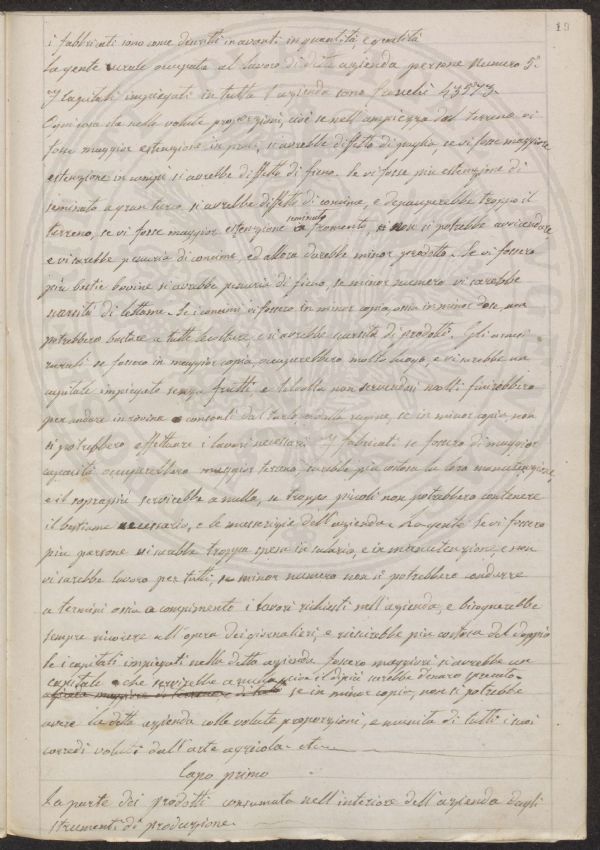 19
i fabbricati sono come descritti in avanti in quantità, e qualità
La gente rurale occupata al lavoro di detta azienda persone Numero 5.
I capitali impiegati in tutta l'azienda sono Franchi
Ogni cosa sta nelle volute proporzioni, cioè se nell'ampiezza del terreno vi
fosse maggior estensione in prati, si avrebbe difetto di paglia, se vi fosse maggiore
estenzione in campi si avrebbe difetto di fieno. Se vi fosse più estenzione di
seminato a gran turco, si avrebbe difetto di concime, e depauperebbe troppo il
terreno, se vi fosse maggior estenzione seminato a fromento, si non si potrebbe avvicendare,
e vi sarebbe penuria di concime, ed allora darebbe minor prodotto. Se vi fossero
più bestie bovine si avrebbe penuria di fieno, se minor numero vi sarebbe
scarsità di lettame. Se i concimi vi fossero in minor copia, ossia in minor dose, non
potrebbero bastare a tutte le colture, e si avrebbe scarsità di prodotti. Gli arnesi
rurali se fossero in maggior copia, occuperebbero molto luogo, e vi sarebbe un
capitale impiegato senza frutti, e talvolta non servendosi molti finirebbero
per andare in rovina consonti dal tarlo o dalla rugine, se in minor copia, non
si potrebbero effettuare i lavori necessari. I fabbricati se fossero di maggior
capacità occuperebbero maggior terreno, sarebbe più costosa la loro manutenzione,
e il soprappiù servirebbe a nulla, se troppo piccoli non potrebbero contenere
il bestiame necessario, e le masserizie dell'azienda. La gente se vi fossero
più persone vi sarebbe troppa spesa in salario, e in manutenzione, e non
vi sarebbe lavoro per tutti, se minor numero non si potrebbero condurre
a termini ossia a compimento i lavori richiesti nell'azienda, e bisognerebbe
sempre ricorere all'opera dei giornalieri, e riescirebbe più costosa del doppio
Se i capitali impiegati nella detta azienda fossero maggiori si avrebbe un
capitale che servirebbe a nulla, cioè il di più sarebbe denaro sprecato
se in minor copia, non si potrebbe
avere la detta azienda colle volute proporzioni, e munita di tutti i suoi
corredi voluti dall'arte agricola etc.
Capo primo
La parte dei prodotti consumata nell'interiore dell'azienda dagli
strumenti di produzione.